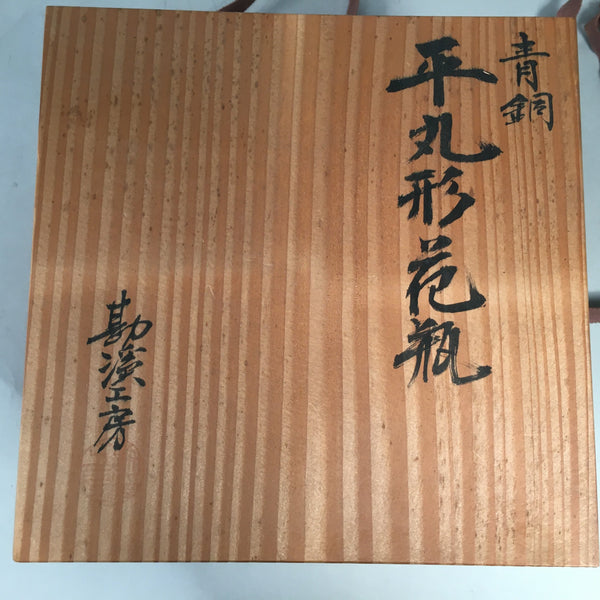 青銅
平丸形花瓶
勘渓工房